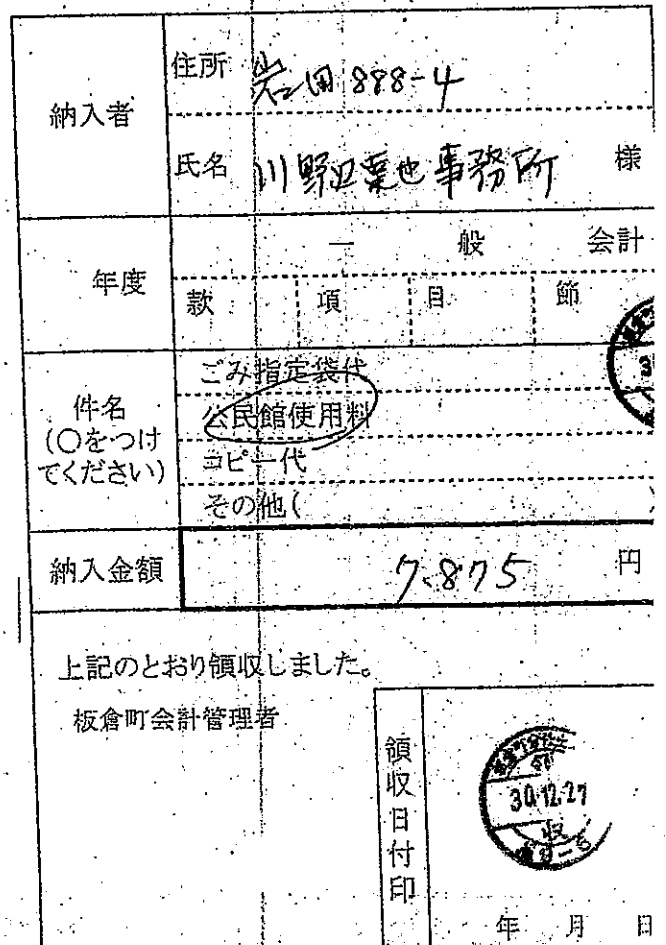 納入者
住所 岩田 888-4
氏名 川野辺 事務所 様
年度
一般会計
款 項 目 節
件名
(○をつけ
てください)
ごみ指定袋代
公民館使用料
コピー代
その他(
納入金額 7.875 円
上記のとおり領収しました。
板倉町会計管理者
領収日付印
30.12.27
収
年 月 日